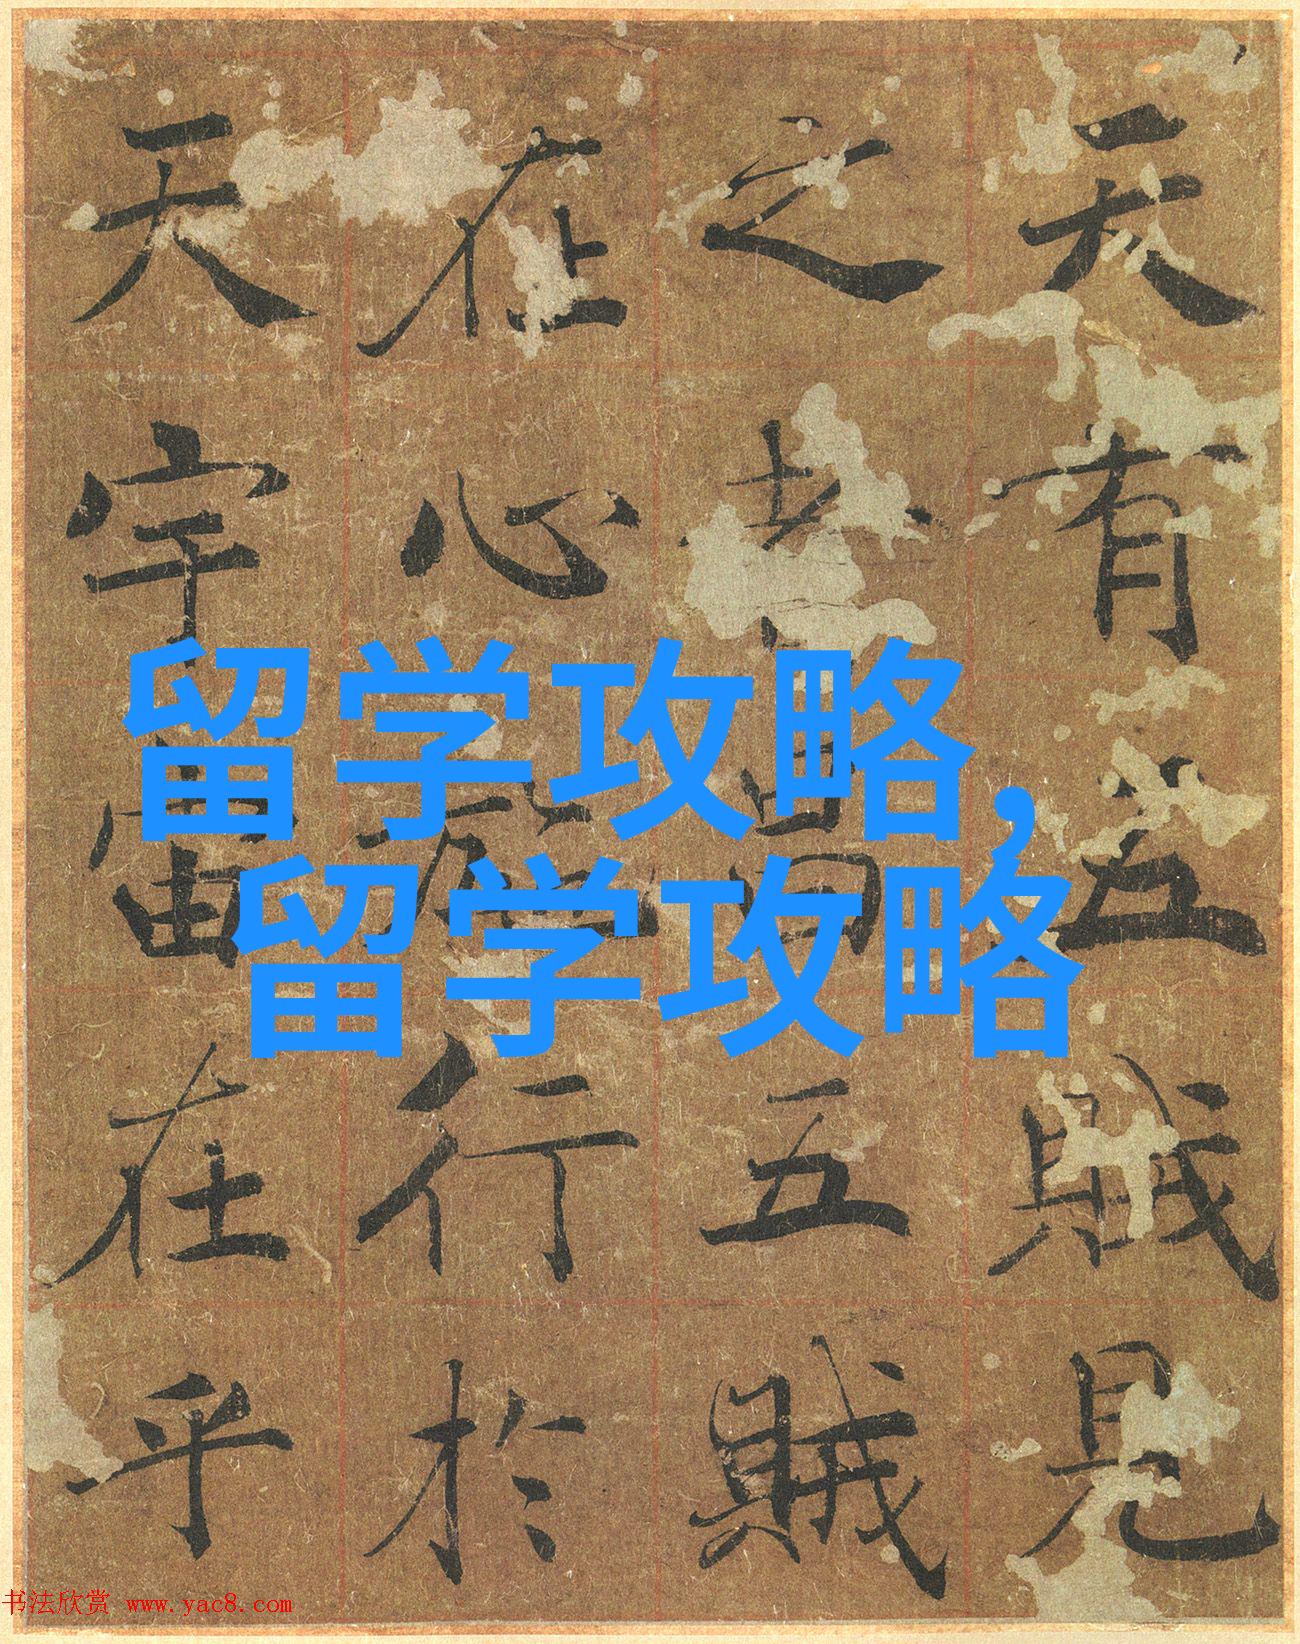 天有五賊見
之者昌五賊
在心施行於
天宇宙在乎
留学攻略,
留学攻略
书法欣赏 www.yac8.com